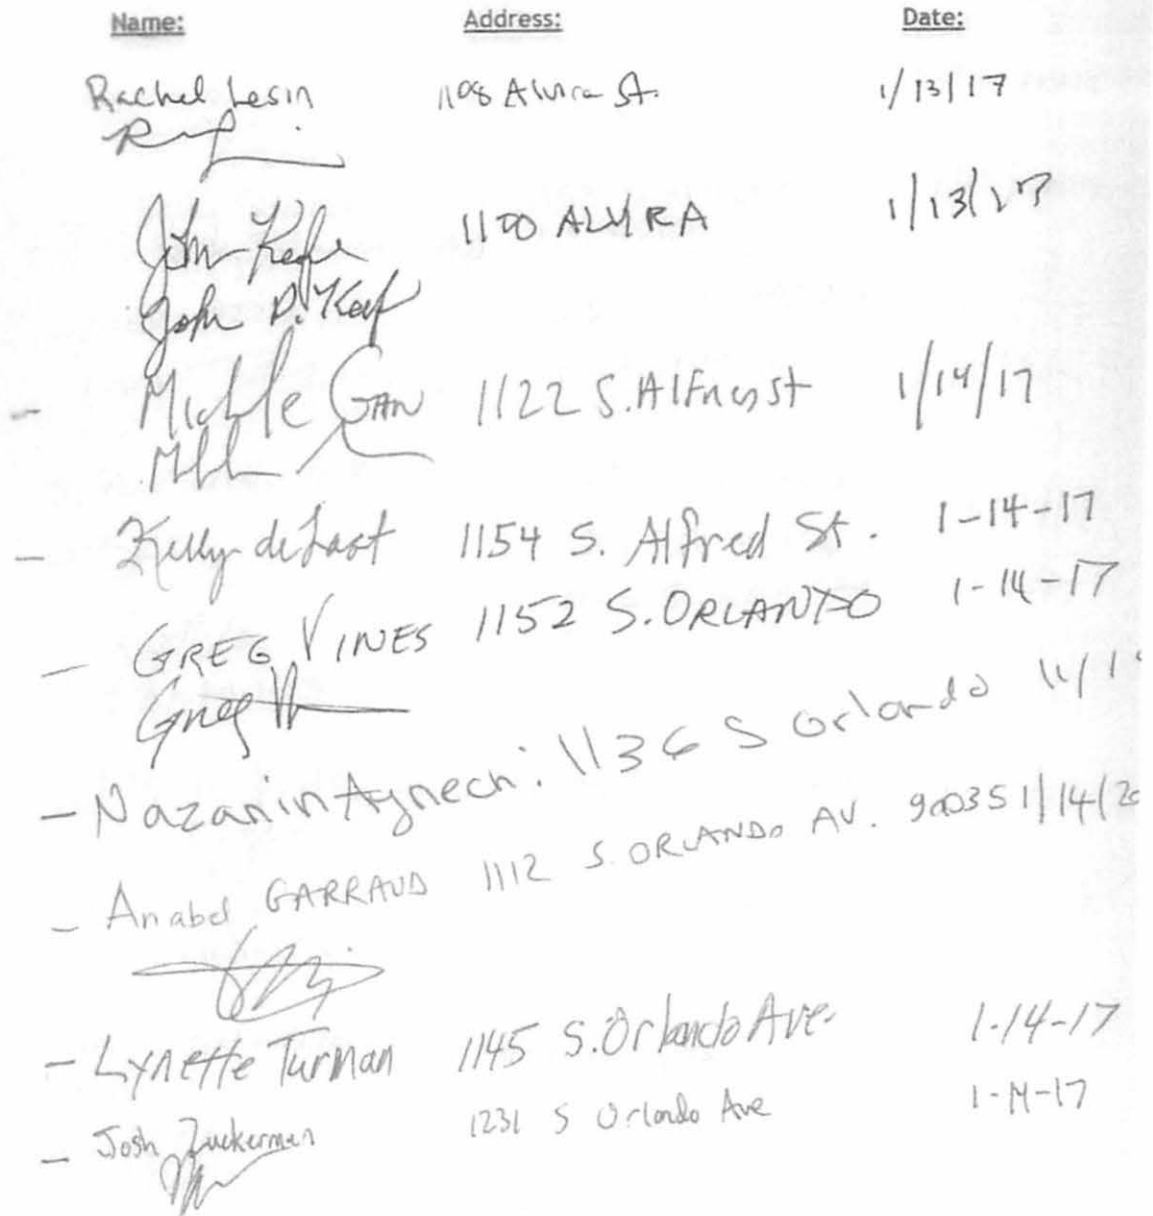 Name: Address: Date:
Rachel Lesin 1108 Alvira St. 1/13/17
John Keefe 1100 ALVIRA 1/13/17
John D. Keef
Michele GAN 1122 S. Alfred st 1/14/17
- Kelly de Last 1154 S. Alfred St. 1-14-17
- GREG VINES 1152 S. ORLANDO 1-14-17
Greg V
- Nazanin 1136 S Orlando
- Anabel GARRAUD 1112 S. ORLANDO AV. 90035 1/14/20
- Lynette Turman 1145 S. Orlando Ave. 1-14-17
- Josh Zuckerman 1231 S Orlando Ave 1-14-17